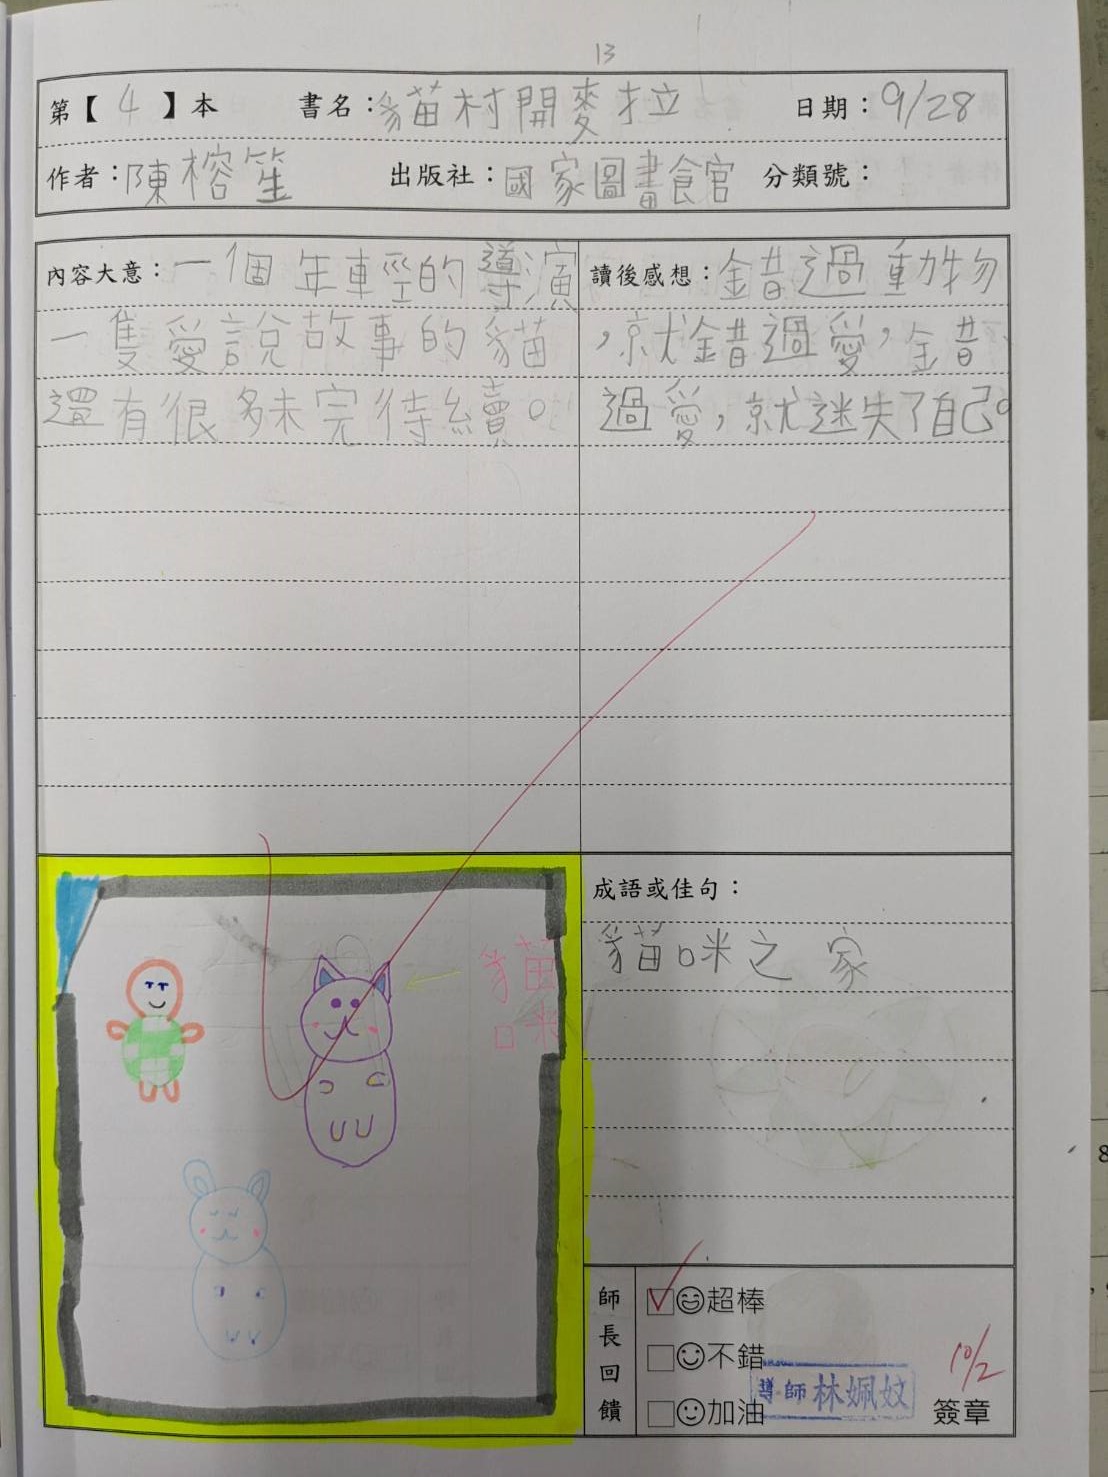 13
第【 4 】本 書名：貓村開麥拉 日期：9/28
作者：陳榕笙 出版社：國家圖書館 分類號：
內容大意：一個年輕的導演
一隻愛說故事的貓
還有很多未完待續。
讀後感想：錯過動物
，就錯過愛，錯
過愛，就迷失了自己。
貓
咪
成語或佳句：
貓咪之家
師長回饋
超棒
不錯
加油
導師 林姵妏
10/2
簽章
8